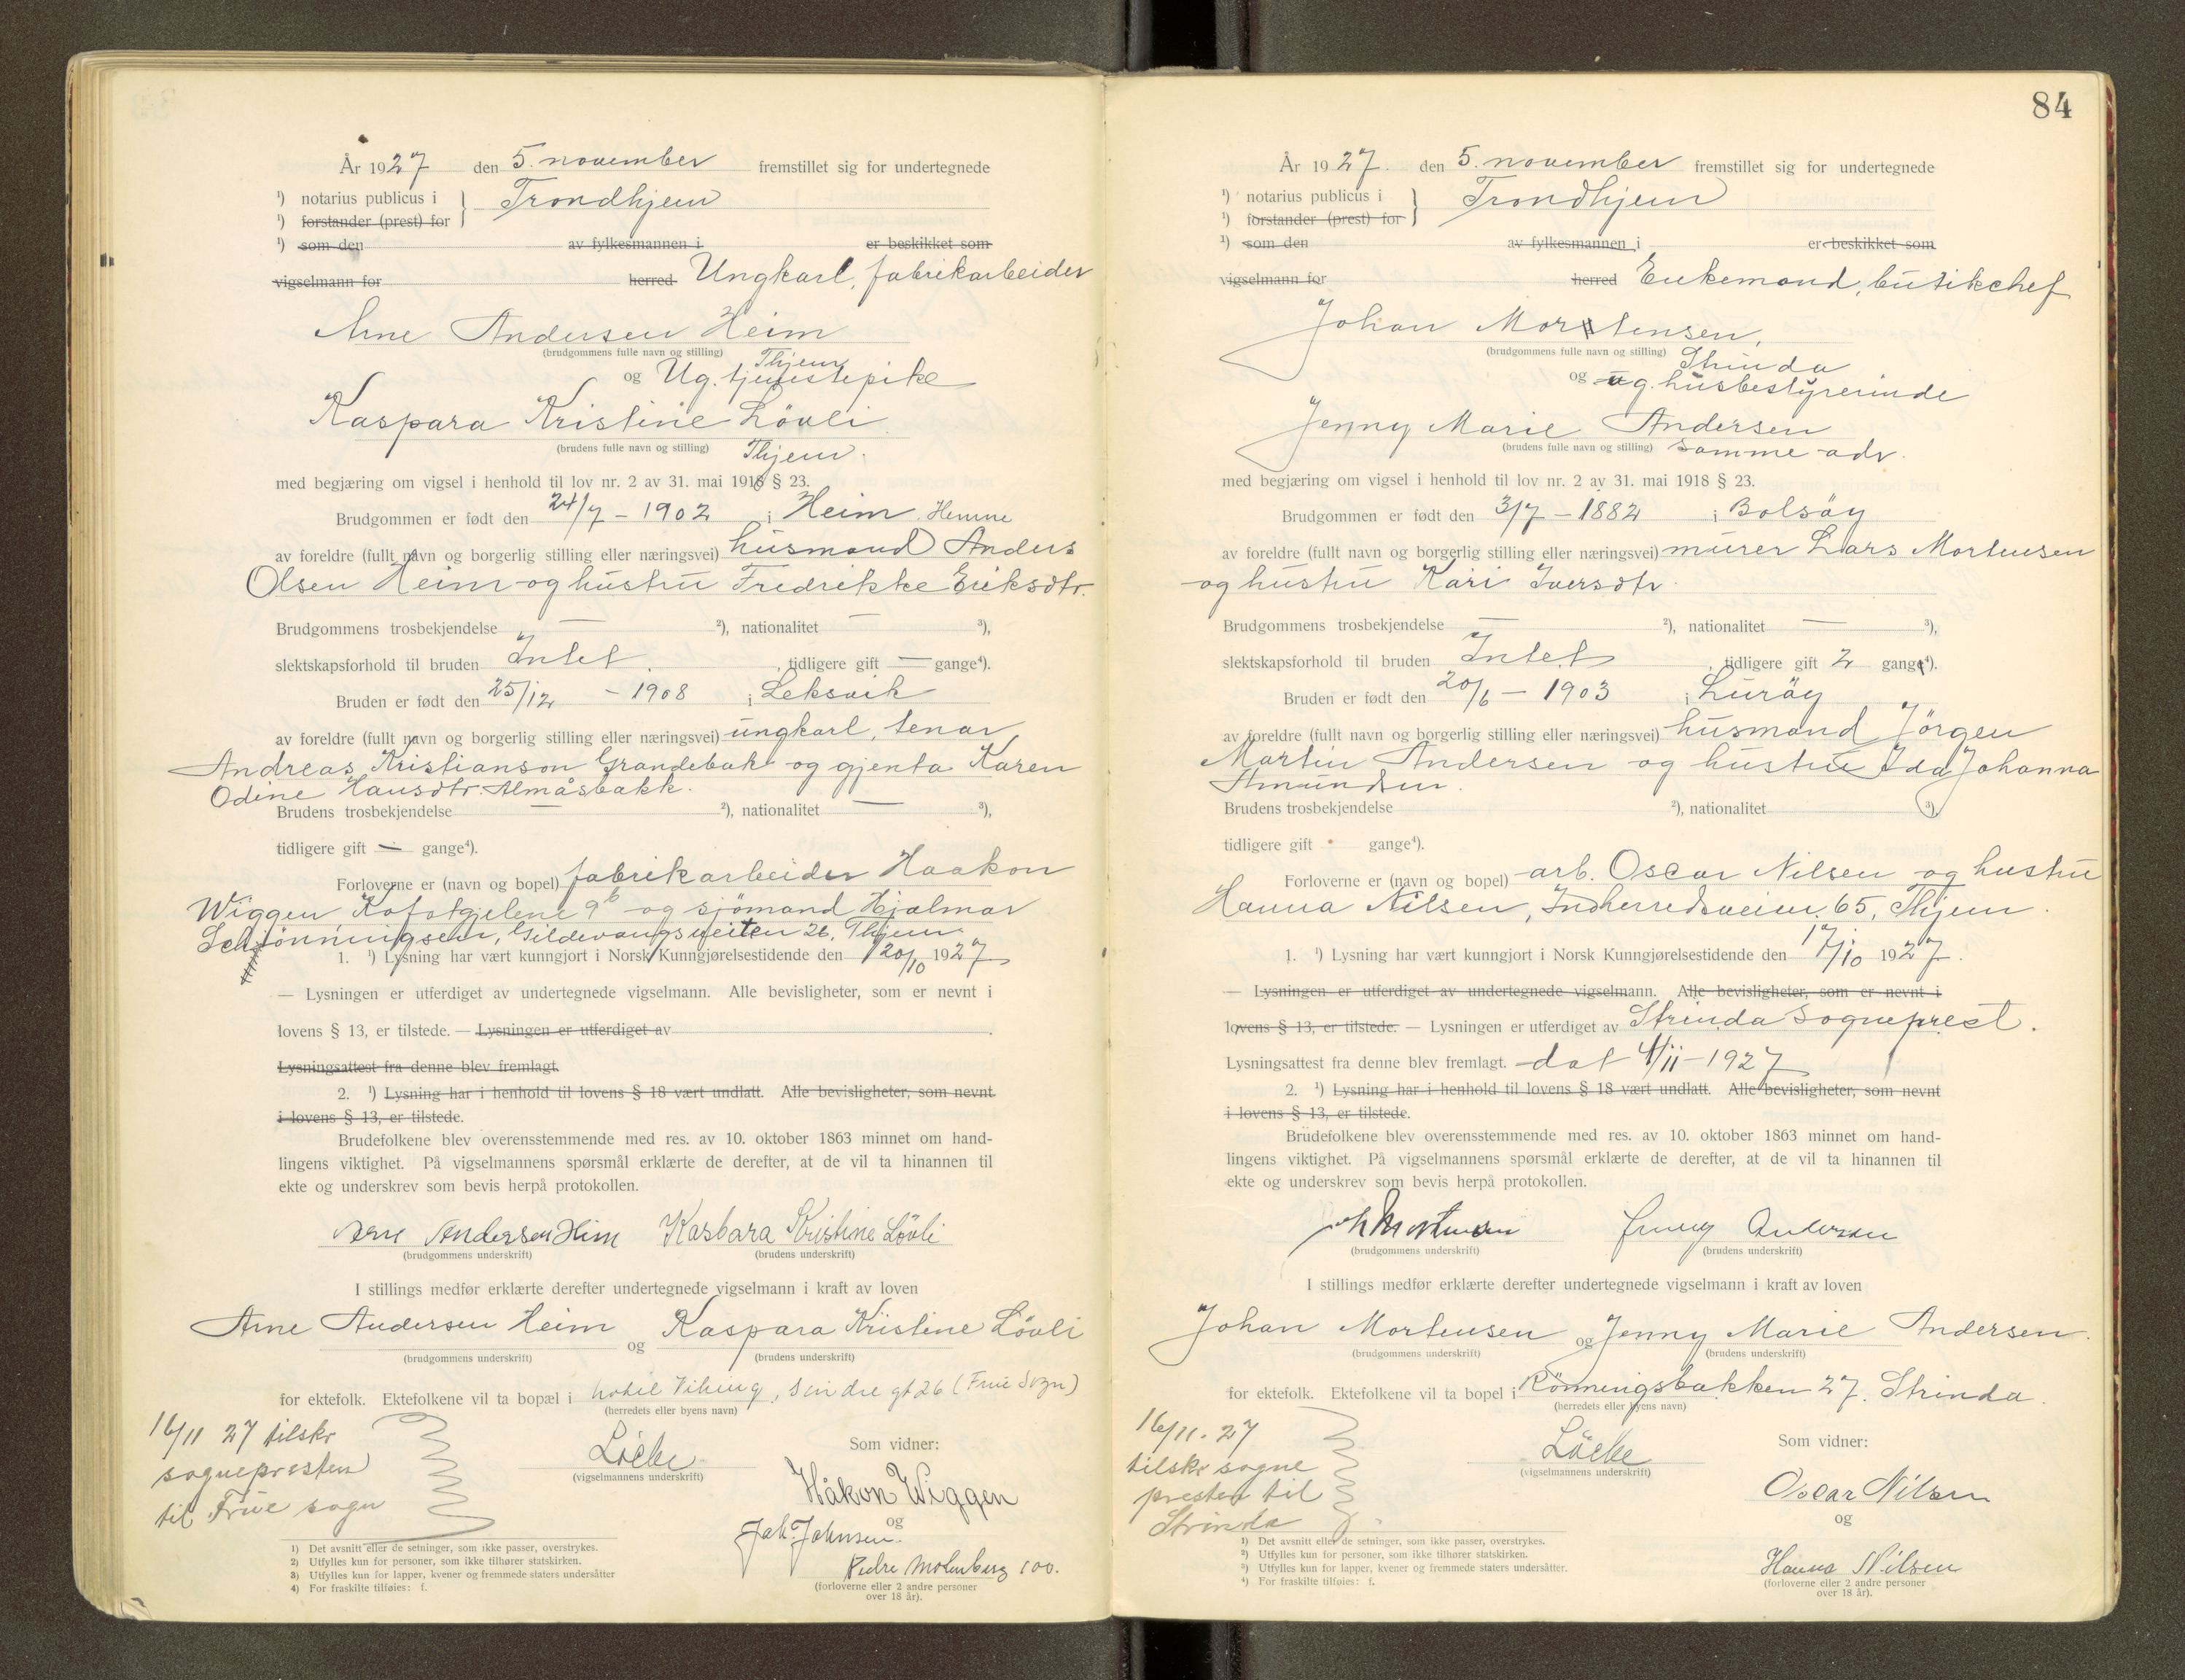 År 1927 den 5. november fremstillet sig for undertegnede
1) notarius publicus i } Trondhjem
1) forstander (prest) for
1) som den av fylkesmannen i er beskikket som
vigselmann for herred Ungkarl, fabrikarbeider
Arne Andersen Heim
(brudgommens fulle navn og stilling) Thjem
og Ug. tjenestepike
Kaspara Kristine Lövli
(brudens fulle navn og stilling) Thjem.
med begjæring om vigsel i henhold til lov nr. 2 av 31. mai 1918 § 23.
Brudgommen er født den 24/7 - 1902 i Heim. Hemne
av foreldre (fullt navn og borgerlig stilling eller næringsvei) husmand Anders
Olsen Heim og hustru Fredrikke Eriksdtr.
Brudgommens trosbekjendelse — 2), nationalitet — 3),
slektskapsforhold til bruden Intet. , tidligere gift — gange4).
Bruden er født den 25/12 - 1908 i Leksvik
av foreldre (fullt navn og borgerlig stilling eller næringsvei) ungkarl,
Andreas Kristianson Grandebak og gjenta Karen
Odine Hansdtr. Almåsbakk.
Brudens trosbekjendelse — 2), nationalitet — 3),
tidligere gift — gange4).
Forloverne er (navn og bopel) fabrikarbeider Haakon
Wiggen 9b og sjömand Hjalmar
Schjönningsen, Gildevangsveiten 26, Thjem.
1. 1) Lysning har vært kunngjort i Norsk Kunngjørelsestidende den 20/10 1927
— Lysningen er utferdiget av undertegnede vigselmann. Alle bevisligheter, som er nevnt i
lovens § 13, er tilstede. — Lysningen er utferdiget av .
Lysningsattest fra denne blev fremlagt.
2. 1) Lysning har i henhold til lovens § 18 vært undlatt. Alle bevisligheter, som nevnt
i lovens § 13, er tilstede.
Brudefolkene blev overensstemmende med res. av 10. oktober 1863 minnet om hand-
lingens viktighet. På vigselmannens spørsmål erklærte de derefter, at de vil ta hinannen til
ekte og underskrev som bevis herpå protokollen.
Arne Andersen Heim Kasbara Kristine Lövli
(brudgommens underskrift) (brudens underskrift)
I stillings medfør erklærte derefter undertegnede vigselmann i kraft av loven
Arne Andersen Heim og Kaspara Kristine Lövli
(brudgommens underskrift) (brudens underskrift)
for ektefolk. Ektefolkene vil ta bopæl i hotel Viking, Sindre gt 26 (Frue Sogn)
(herredets eller byens navn)
16/11 27 tilskr
sognepresten
til Frue sogn
Löcke
(vigselmannens underskrift)
Som vidner:
Håkon Wiggen
og
Joh. Johnsen.
Molenberg 100.
(forloverne eller 2 andre personer
over 18 år).
1) Det avsnitt eller de setninger, som ikke passer, overstrykes.
2) Utfylles kun for personer, som ikke tilhører statskirken.
3) Utfylles kun for lapper, kvener og fremmede staters undersåtter
4) For fraskilte tilføies: f.
84
År 1927. den 5. november fremstillet sig for undertegnede
1) notarius publicus i } Trondhjem
1) forstander (prest) for
1) som den av fylkesmannen i er beskikket som
vigselmann for herred Enkemand, butikchef
Johan Mortensen,
(brudgommens fulle navn og stilling) Strinda
og ug. husbestyrerinde
Jenny Marie Andersen
(brudens fulle navn og stilling) samme adr.
med begjæring om vigsel i henhold til lov nr. 2 av 31. mai 1918 § 23.
Brudgommen er født den 3/7 - 1882 i Bolsöy
av foreldre (fullt navn og borgerlig stilling eller næringsvei) murer Lars Mortensen
og hustru Kari Iversdtr.
Brudgommens trosbekjendelse — 2), nationalitet — 3),
slektskapsforhold til bruden Intet , tidligere gift 2 gange4).
Bruden er født den 20/6 - 1903 i Luröy
av foreldre (fullt navn og borgerlig stilling eller næringsvei) husmand Jörgen
Martin Andersen og hustru Ida Johanna
Amundsen.
Brudens trosbekjendelse 2), nationalitet 3),
tidligere gift gange4).
Forloverne er (navn og bopel) arb. Oscar Nilsen og hustru
Hanna Nilsen, Indherredsveien 65, Thjem.
1. 1) Lysning har vært kunngjort i Norsk Kunngjørelsestidende den 17/10 1927.
— Lysningen er utferdiget av undertegnede vigselmann. Alle bevisligheter, som er nevnt i
lovens § 13, er tilstede. — Lysningen er utferdiget av Strinda sogneprest.
Lysningsattest fra denne blev fremlagt. dat 4/11 - 1927
2. 1) Lysning har i henhold til lovens § 18 vært undlatt. Alle bevisligheter, som nevnt
i lovens § 13, er tilstede.
Brudefolkene blev overensstemmende med res. av 10. oktober 1863 minnet om hand-
lingens viktighet. På vigselmannens spørsmål erklærte de derefter, at de vil ta hinannen til
ekte og underskrev som bevis herpå protokollen.
Mortensen Jenny Andersen
(brudgommens underskrift) (brudens underskrift)
I stillings medfør erklærte derefter undertegnede vigselmann i kraft av loven
Johan Mortensen og Jenny Marie Andersen.
(brudgommens underskrift) (brudens underskrift)
for ektefolk. Ektefolkene vil ta bopel i Rönningsbakken 27. Strinda.
(herredets eller byens navn)
16/11. 27
tilskr sogne
presten til
Strinda
Löcke
(vigselmannens underskrift)
Som vidner:
Oscar Nilsen
og
Hanna Nilsen
(forloverne eller 2 andre personer
over 18 år).
1) Det avsnitt eller de setninger, som ikke passer, overstrykes.
2) Utfylles kun for personer, som ikke tilhører statskirken.
3) Utfylles kun for lapper, kvener og fremmede staters undersåtter.
4) For fraskilte tilføies: f.